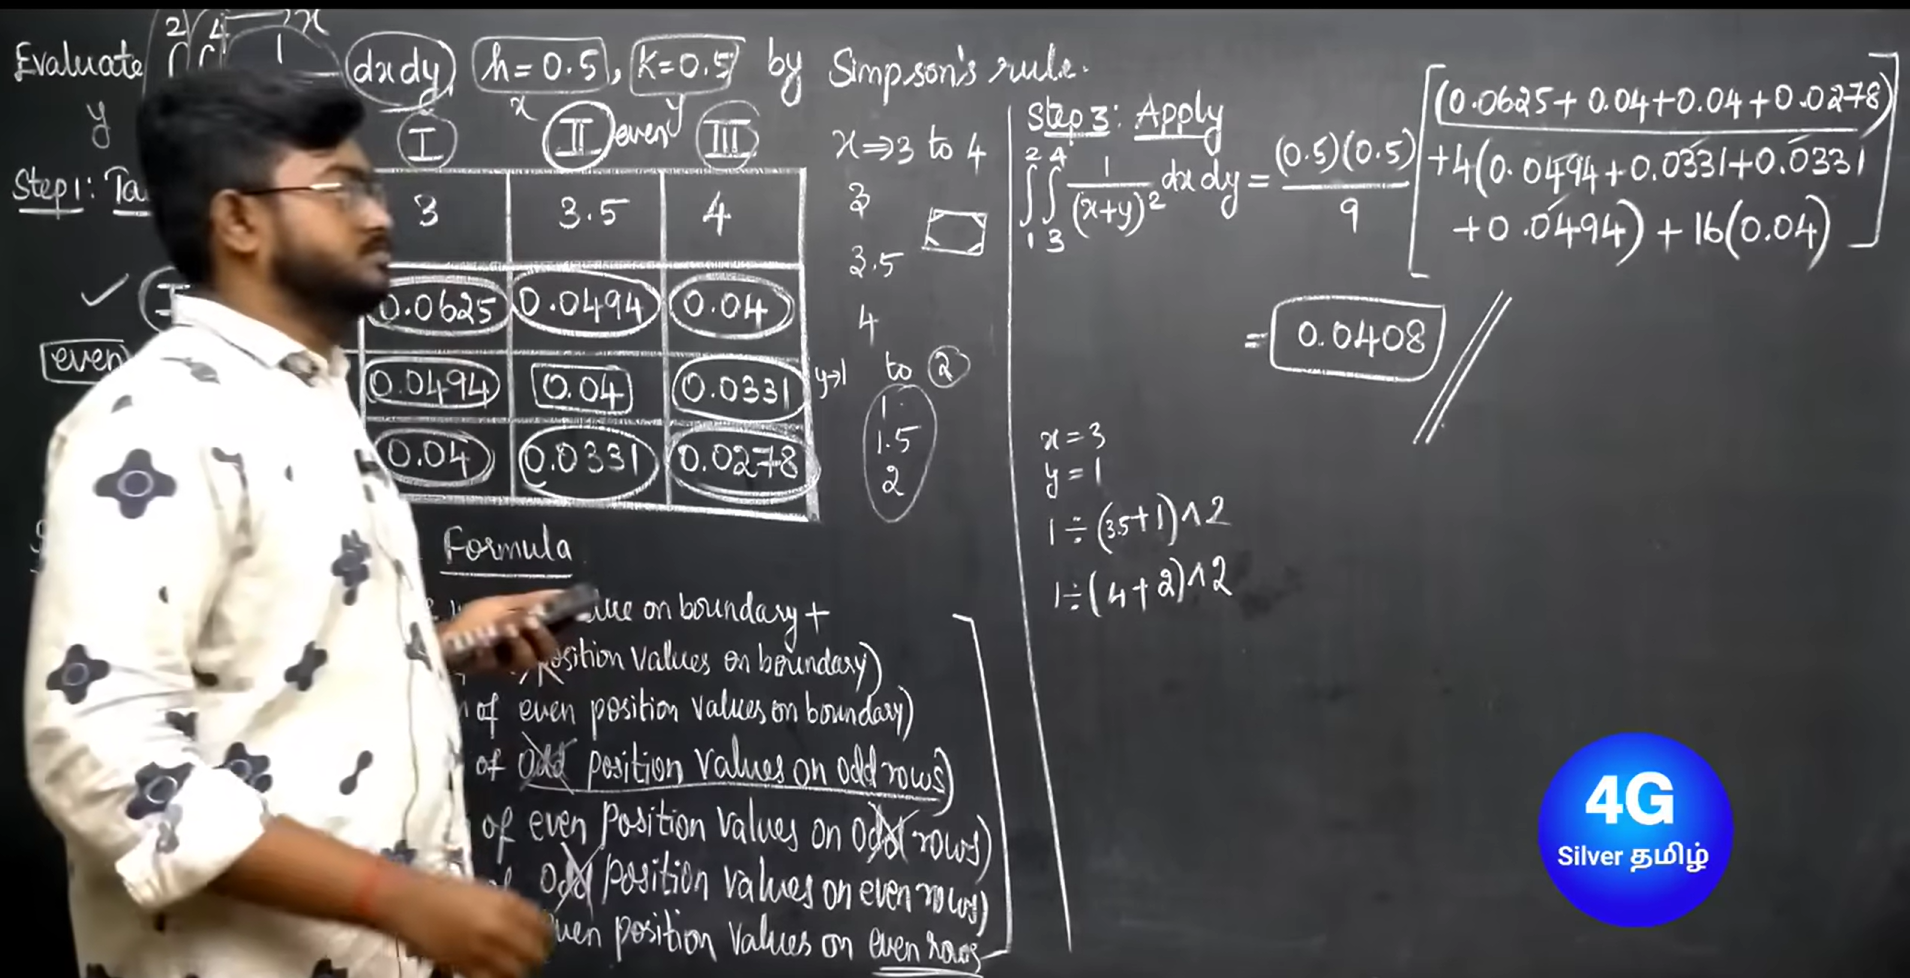 2 4 x
Evaluate ∫∫ 1 dxdy, h=0.5, k=0.5 by Simpson's rule.
y x y
I II even III
Step 1: Ta
3 3.5 4
0.0625 0.0494 0.04
even 0.0494 0.04 0.0331
0.04 0.0331 0.0278
x⇒3 to 4
3
3.5
4
y→1 to 2
1
1.5
2
Formula
value on boundary +
position values on boundary)
of even position values on boundary)
of odd position values on odd rows)
of even position values on odd rows)
of odd position values on even rows)
even position values on even rows
Step 3: Apply
∫₁²∫₃⁴ 1/(x+y)² dx dy = (0.5)(0.5)/9 [(0.0625+0.04+0.04+0.0278)
+4(0.0494+0.0331+0.0331
+0.0494)+16(0.04)]
= 0.0408
x=3
y=1
1÷(3.5+1)^2
1÷(4+2)^2
4G
Silver தமிழ்